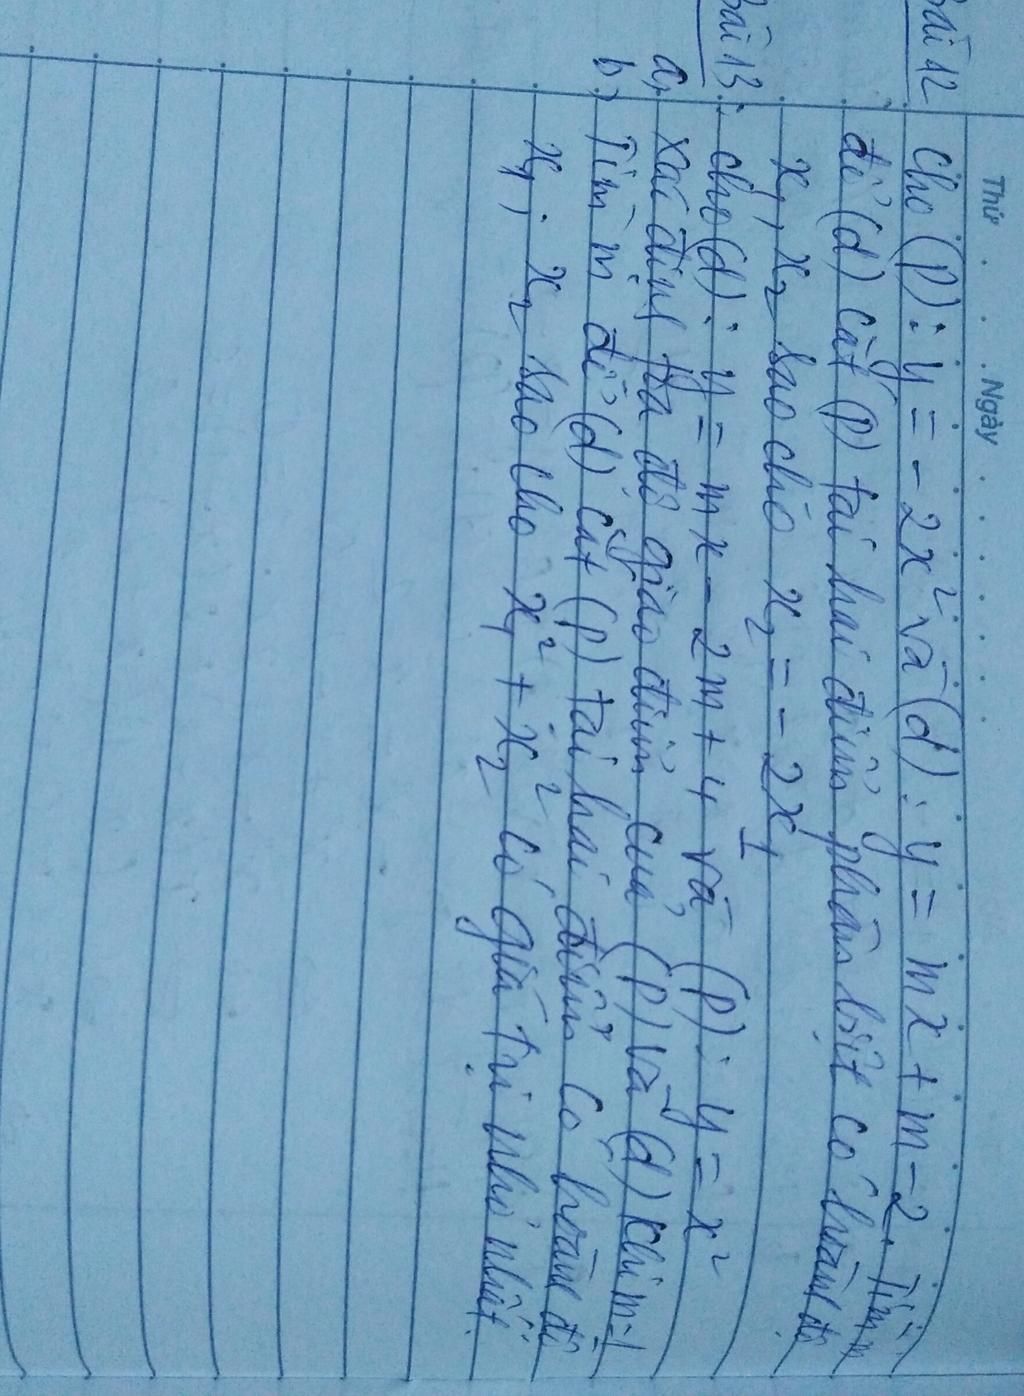 Thứ . . . . Ngày . . . . . . .
Bài 12 Cho (P): y = -2x² và (d): y = mx + m - 2. Tìm m
để (d) cắt (P) tại hai điểm phân biệt có hoành độ
x₁, x₂ sao cho x₂ = -2x₁
Bài 13: cho (d): y = mx - 2m + 4 và (P): y = x²
a, Xác định tọa độ giao điểm của (P) và (d) khi m=1
b, Tìm m để (d) cắt (P) tại hai điểm có hoành độ
x₁; x₂ sao cho x₁² + x₂² có giá trị nhỏ nhất.